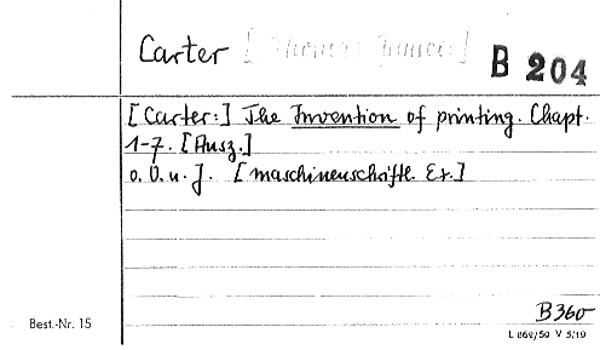 Carter [Thomas Francis] B 204
[Carter:] The Invention of printing. Chapt.
1-7. [Ausz.]
o. O. u. J. [maschinenschriftl. Ex.]
B360
Best.-Nr. 15
L 868/59 V 5/19